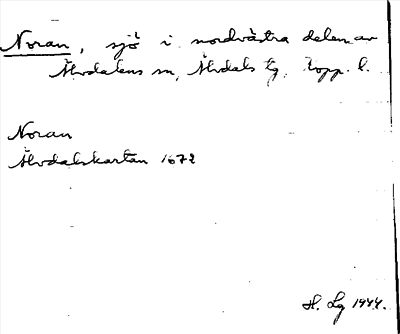 Noran, sjö i nordvästra delen av
Älvdalens sn, Älvdals tg, Kopp. l.
Noran
Älvdalskartan 1672
H. Lg 1944.